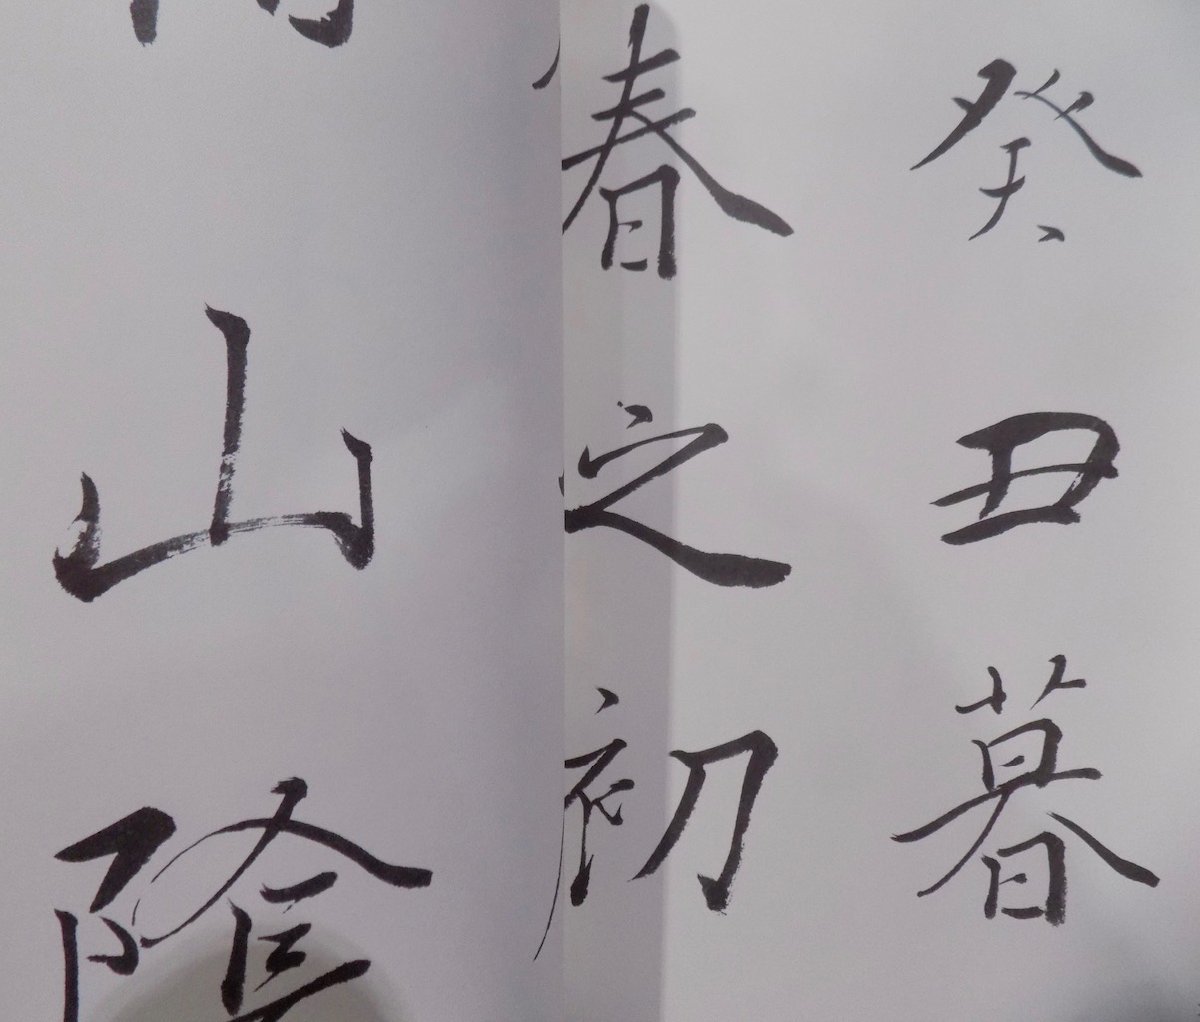 癸丑暮
春之初
山陰